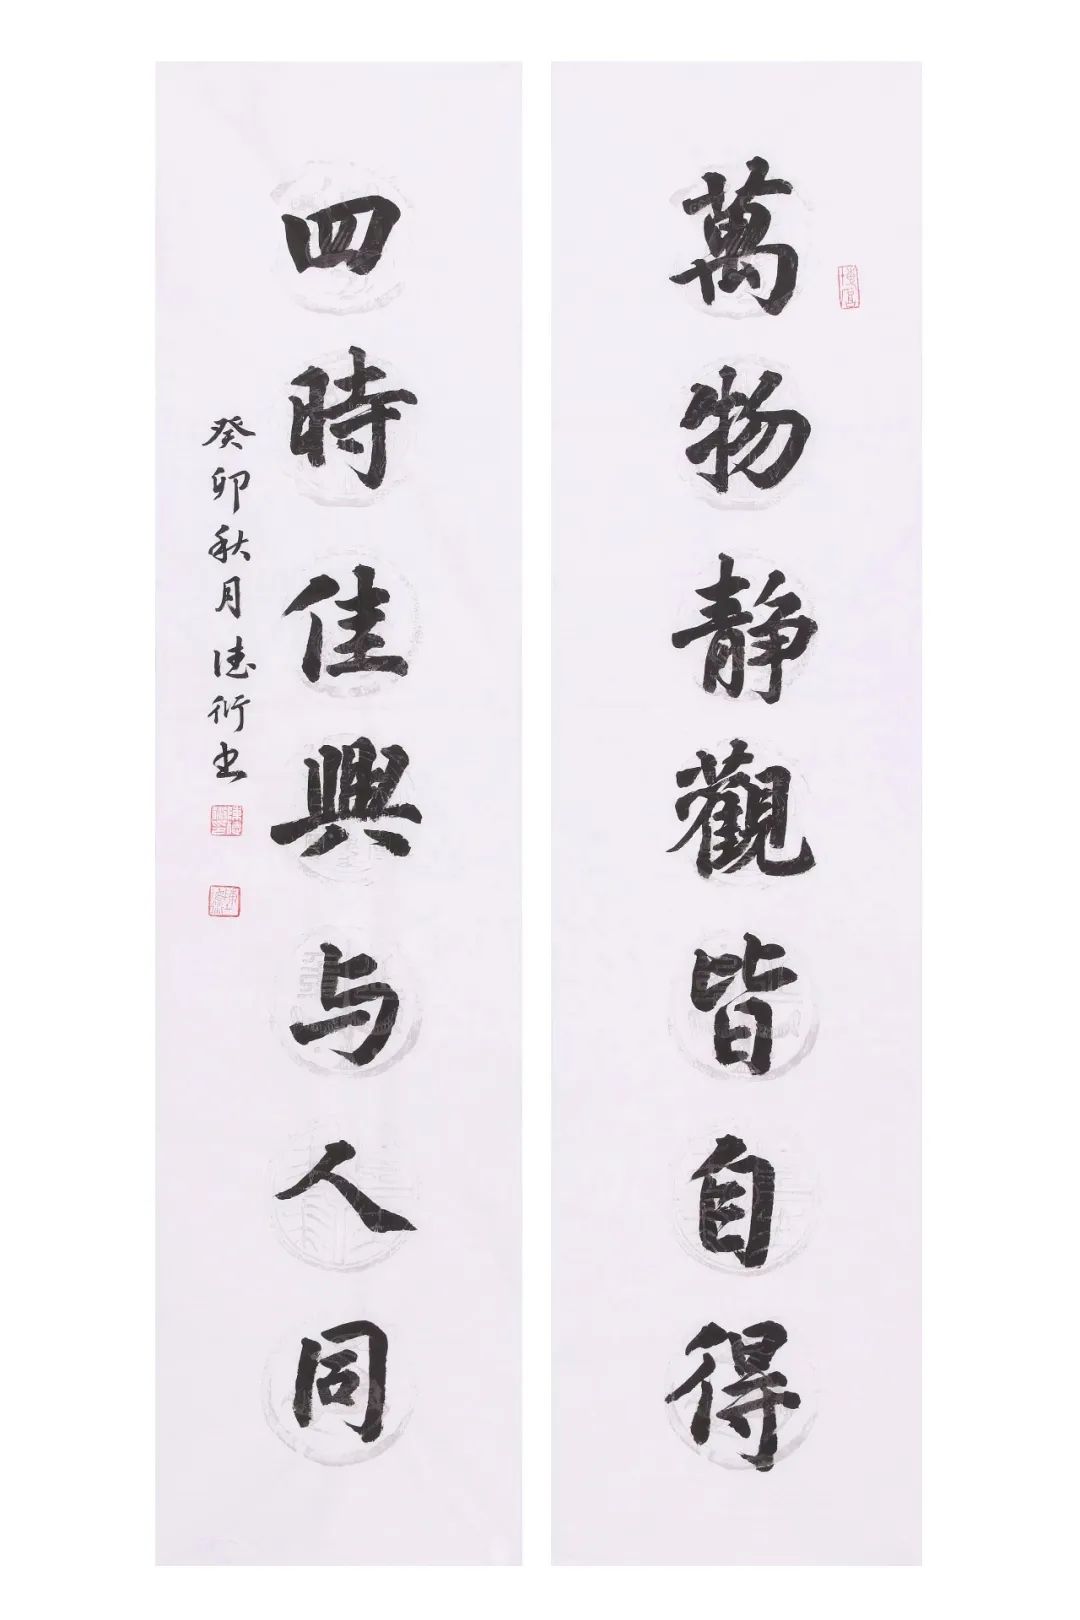 萬物静觀皆自得
四時佳興与人同
癸卯秋月德衍书